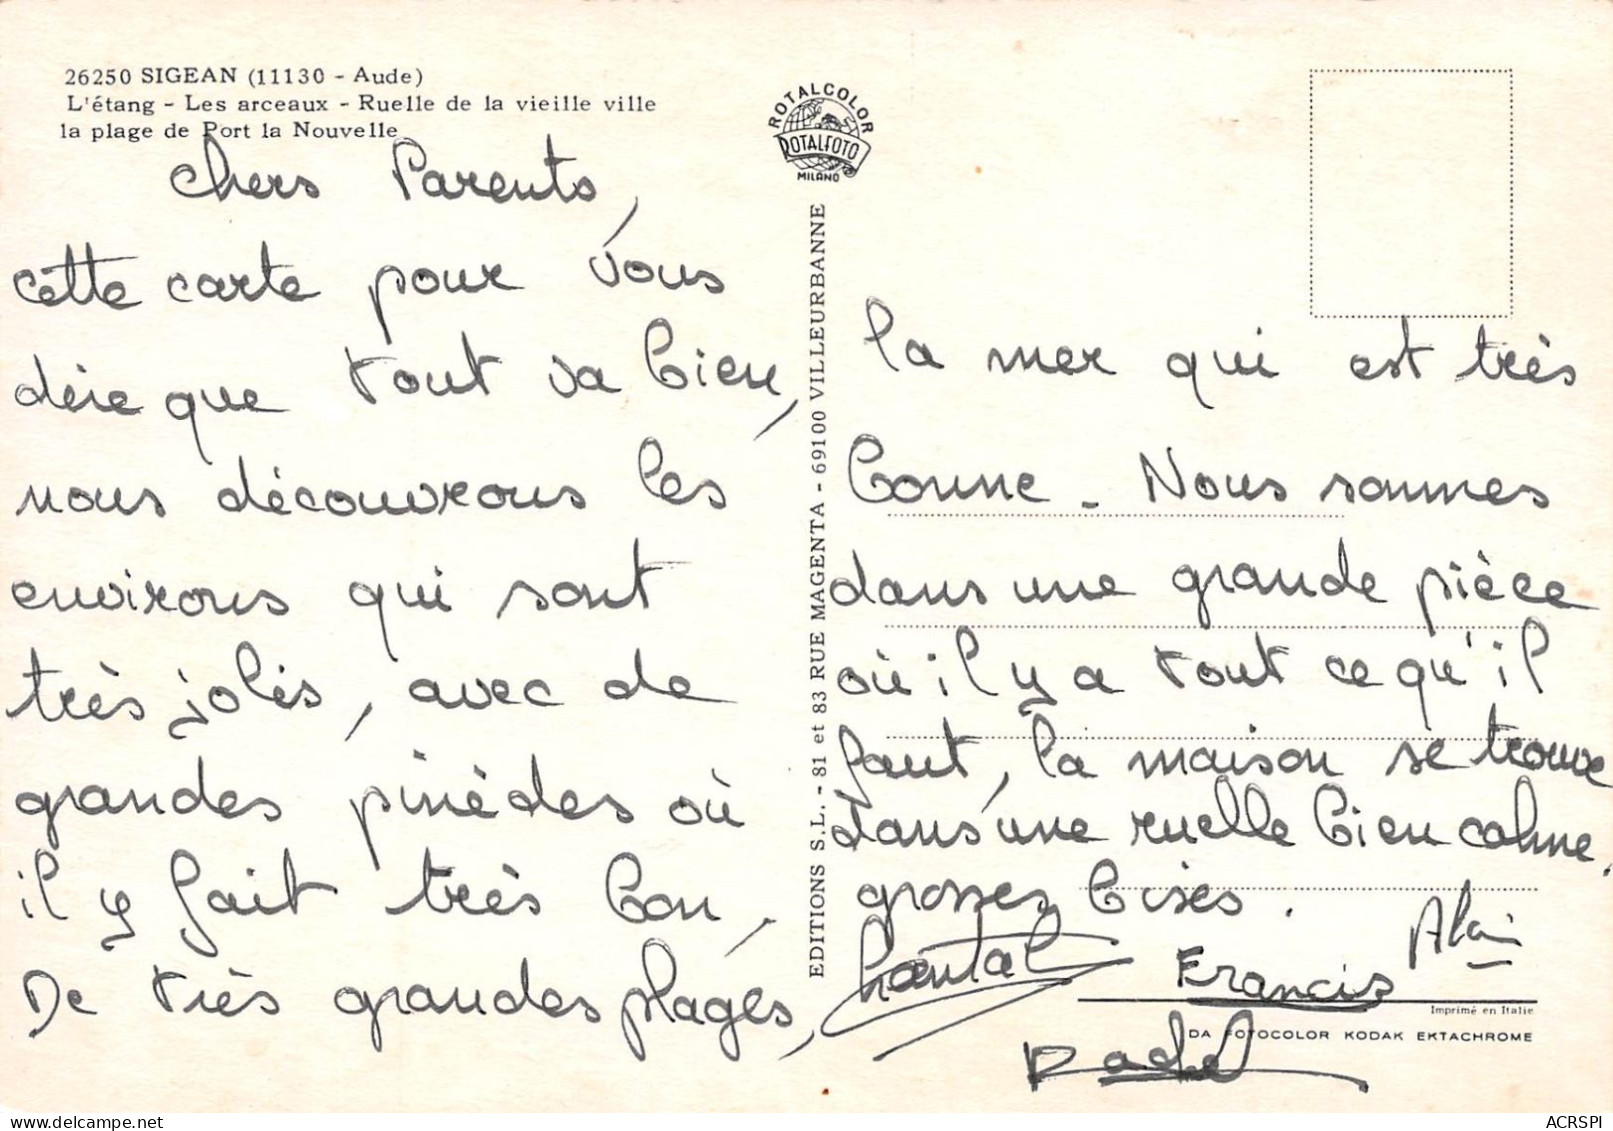 26250 SIGEAN (11130 - Aude)
L'étang - Les arceaux - Ruelle de la vieille ville
la plage de Port la Nouvelle
chers Parents,
cette carte pour vous
dire que tout va bien,
nous découvrons les
environs qui sont
très jolis, avec de
grandes pinèdes où
il y fait très bon,
De très grandes plages,
ROTALCOLOR
ROTALFOTO
MILANO
EDITIONS S.L. - 81 et 83 RUE MAGENTA - 69100 VILLEURBANNE
la mer qui est très
bonne - Nous sommes
dans une grande pièce
où il y a tout ce qu'il
faut, la maison se trouve
dans une ruelle bien calme,
grosses bises.
Chantal
Francis
Alain
Rachel
Imprimé en Italie
DA FOTOCOLOR KODAK EKTACHROME
ACRSPI